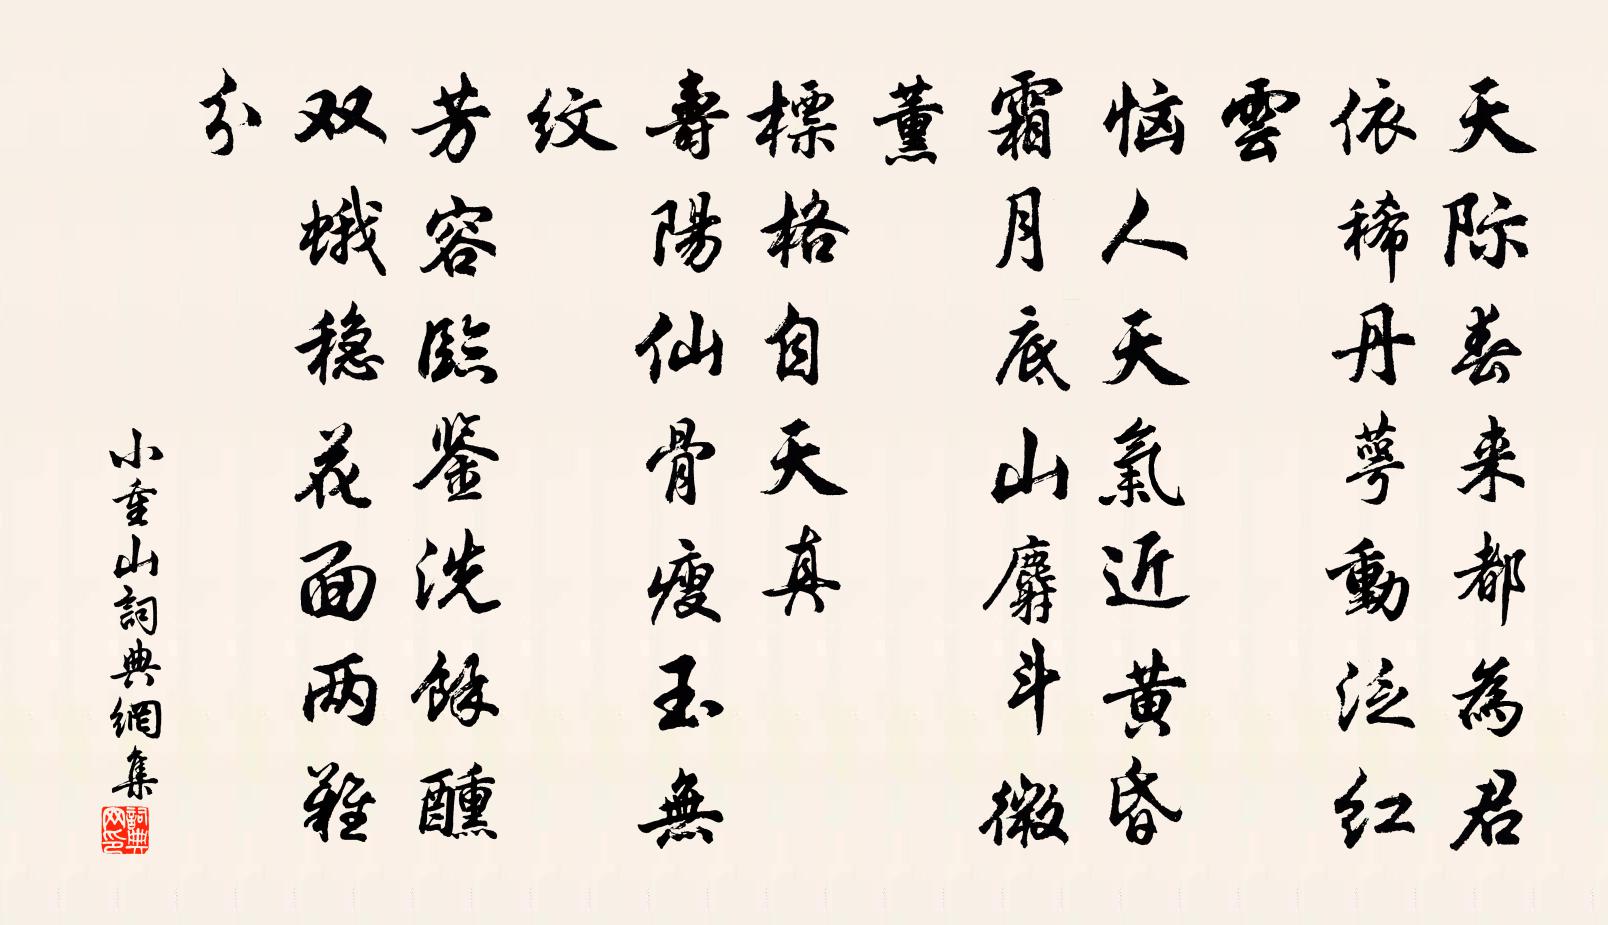 天际春来都為君
依稀丹萼動泛红
雲
恼人天氣近黄昏
霜月底山麝斗微
薰
標格自天真
壽陽仙骨瘦玉無
纹
芳容臨鉴洗餘醺
双蛾穏花面两難
分
小重山詞典網集
詞典
网印